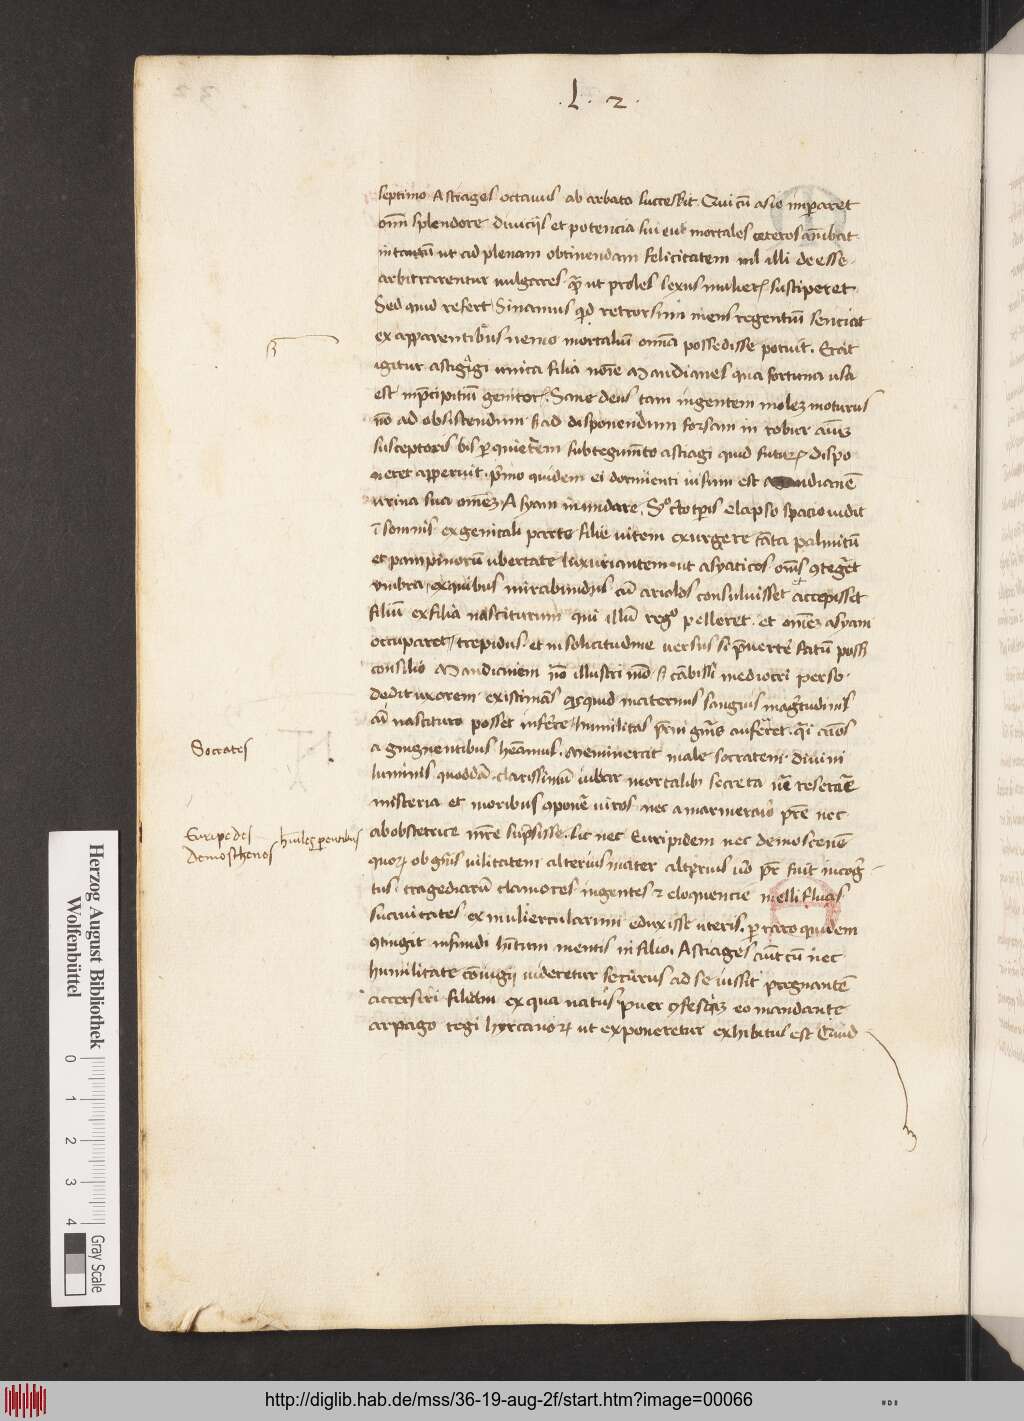 .L. 2.
septimo Astiages octauus ab arbato successit. Qui cū asie imparet
omī splendore diuicijs et potencia sui eui mortales ceteros anibat
in tantū ut ad plenam obtinendam felicitatem nil illi deesse
arbitrarentur uulgares. ut proles sexus susciperet
Sed quid refert Sinamus qd retrorsim mens regentiū senciat
ex apparentibus nemo mortaliū omīa possedisse potuit. Erat
igitur unica filia noīe Mandianes qua fortuna usa
est genitor. Sane deus tam ingentem molez moturus
nō ad obsistendum s ad disponendum forsam in robur
susceptoris bis p quietem astiagi quid futur dispo
neret apperuit. pmo quidem ei dormienti uisum est Mandianē
urina sua omēz Asyam inundare. elapso spacio uidit
ī somnis ex genitali parte filie uitem exurgere tāta palmitū
et pampinorū ubertate luxuriantem ut asyaticos omīs
umbra. ex quibus mirabundus cū ariolos consuluisset accepisset
filiū ex filia nasciturum qui illū regō pelleret. et omēz asyam
occuparet, trepidus et in solicitudine uersus si fatū posset
consilio Mandianem nō illustri mō s cābissi mediocri perse
dedit uxorem existimās quid maternus sanguis magītudinis
cū nascituro posset inferre humilitas auferret.
a gingnentibus heāmus. Meminerat male socratem. diuini
luminis quoddā clarissimū iubar mortalib secreta reserātē
misteria et moribus uiros nec a marmerario pre nec
ab obstetrice sūpsisse. sic nec Euripidem nec demoscenē
quor ob gnis uilitatem alterius mater alterius pr fuit incog
tus. tragediarū clamores ingentes et eloquencie mellifluas
suauitates ex muliercularum eduxisse uteris. p raro quidem
infundi mentis in filio. Astiages cum nec
humilitate cōiugij uideretur securus ad se iussit pregnantē
accersiri filiam ex qua natus puer eo mandante
arpago regi hyrcanor ut exponeretur exhibitus est Quid
Socrates
Euripedes
Demosthenes
Herzog August Bibliothek
Wolfenbüttel
0 1 2 3 4
Gray Scale
http://diglib.hab.de/mss/36-19-aug-2f/start.htm?image=00066